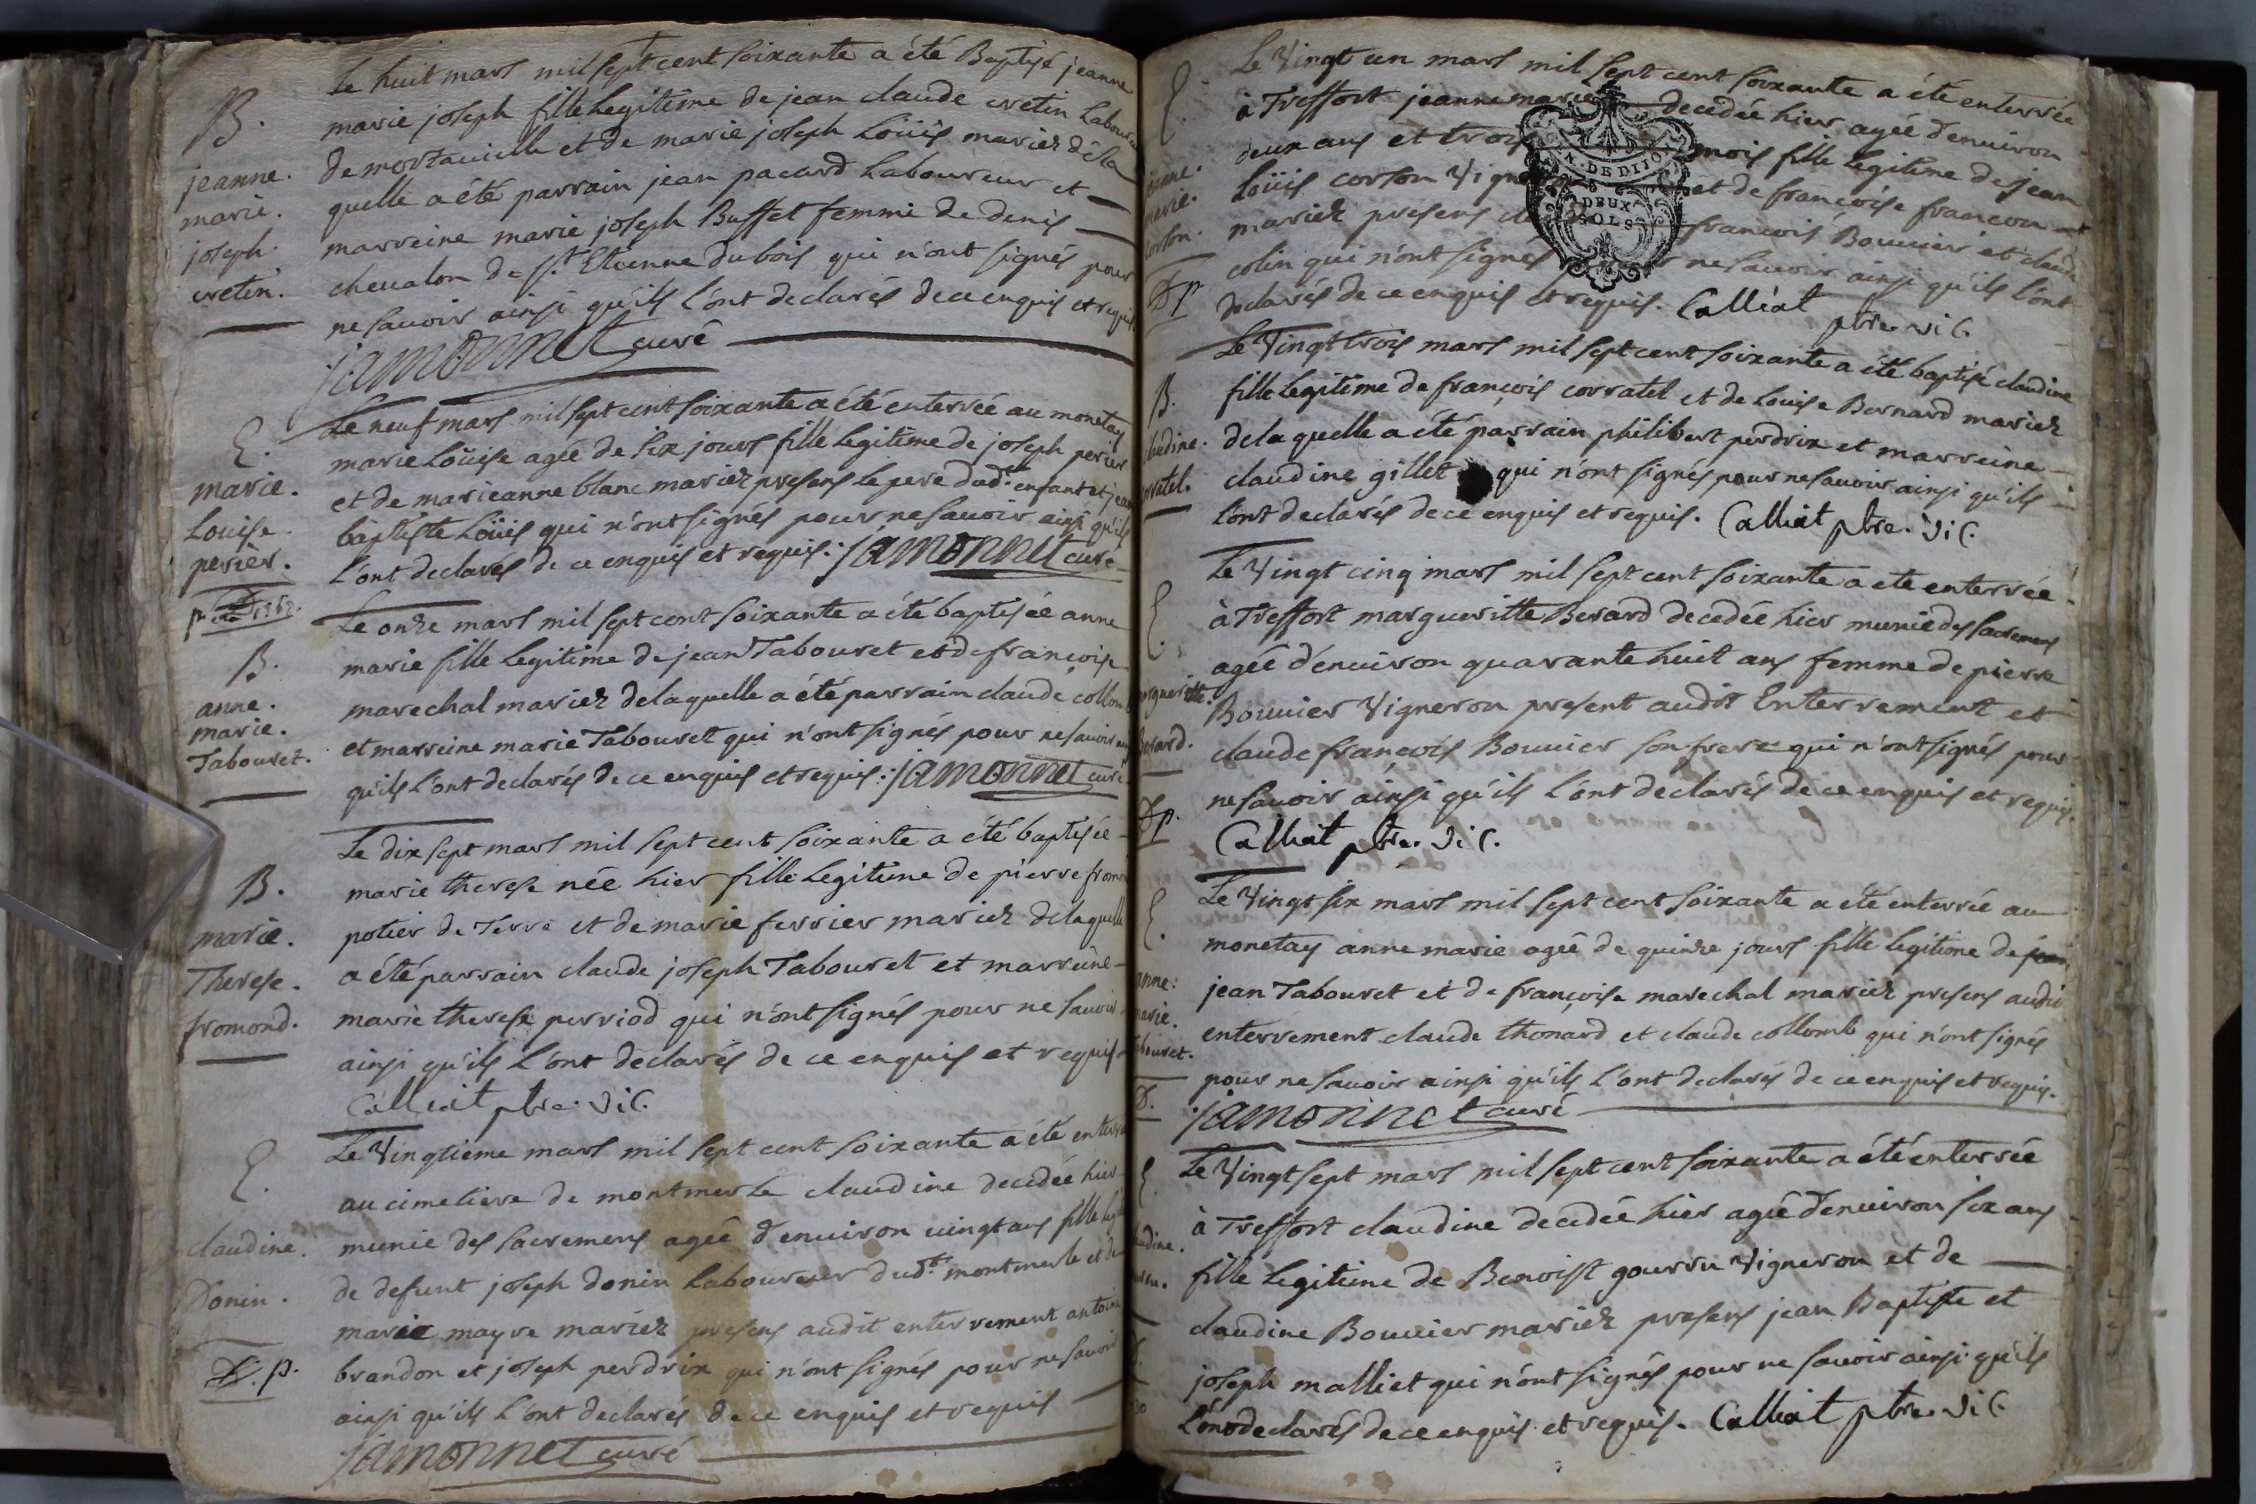 B.
jeanne.
marie.
joseph.
cretin.
Le huit mars mil sept cent soixante a été Baptisé jeanne
marie joseph fille legitime de jean claude cretin Laboureur
de mortauielle et de marie joseph Loüis mariez de la
quelle a été parrain jean pacard Laboureur et
marreine marie joseph Buffet femme de denis
cheualon de St. Etienne dubois qui n'ont signés pour
ne sauoir ainsi qu'ils l'ont declarés de ce enquis et requis
jamonnet curé
E.
marie.
Louise
perier.
Le neuf mars mil sept cent soixante a été enterrée au monetay
marie Loüise ageé de six jours fille legitime de joseph perier
et de marieanne blanc mariez presens le pere dud. enfant et jean
baptiste Loüis qui n'ont signés pour ne sauoir ainsi qu'ils
l'ont declarés de ce enquis et requis. jamonnet curé
B.
anne.
marie.
Tabouret.
Le onze mars mil sept cent soixante a été baptisée anne
marie fille legitime de jean Tabouret et de françoise
marechal mariez de laquelle a été parrain claude collomb
et marreine marie Tabouret qui n'ont signés pour ne sauoir ainsi
qu'ils l'ont declarés de ce enquis et requis. jamonnet curé
B.
marie.
Therese.
fromond.
Le dix sept mars mil sept cent soixante a été baptisée
marie therese née hier fille legitime de pierre fromond
potier de Terre et de marie ferrier mariez de laquelle
a été parrain claude joseph Tabouret et marreine
marie therese perriod qui n'ont signés pour ne sauoir
ainsi qu'ils l'ont declarés de ce enquis et requis
Calliat ptre. vic.
E.
claudine.
Donin.
D. p.
Le Vingtieme mars mil sept cent soixante a été enterrée
au cimetiere de montmerle claudine decedée hier
munie des sacremens ageé d'enuiron uingt ans fille legitime
de defunt joseph donin Laboureur dud. montmerle et de
marie mayre mariez presens audit enterrement antoine
brandon et joseph perdrix qui n'ont signés pour ne sauoir
ainsi qu'ils l'ont declarés de ce enquis et requis
jamonnet curé
E.
jeanne.
marie.
corton.
D p
Le Vingt un mars mil sept cent soixante a été enterrée
à Treffort jeanne marie decedée hier agée d'enuiron
deux ans et trois mois fille legitime de jean
Loüis corton Vigneron et de françoise francon
mariez presens françois Bouuier et claude
colin qui n'ont signés pour ne sauoir ainsi qu'ils l'ont
declarés de ce enquis et requis. Calliat ptre. vic.
GEN. DE DIJON
DEUX
SOLS
B.
claudine.
corratel.
Le Vingt trois mars mil sept cent soixante a été baptisé claudine
fille legitime de françois corratel et de Louise Bernard mariez
de la quelle a été parrain philibert perdrix et marreine
claudine gillet qui n'ont signés pour ne sauoir ainsi qu'ils
l'ont declarés de ce enquis et requis. Calliat ptre. vic.
E.
margueritte.
Berard.
D p.
Le Vingt cinq mars mil sept cent soixante a eté enterrée
à Treffort margueritte Berard decedée hier munie des sacremens
agée d'enuiron quarante huit ans femme de pierre
Bouuier Vigneron present audit Enterrement et
claude françois Bouuier son frere qui n'ont signés pour
ne sauoir ainsi qu'ils l'ont declarés de ce enquis et requis.
Calliat ptre. vic.
E.
anne:
marie.
Tabouret.
D.
Le Vingt six mars mil sept cent soixante a été enterrée au
monetay anne marie ageé de quinze jours fille legitime de
jean Tabouret et de françoise marechal mariez presens audit
enterrement claude thonard et claude collomb qui n'ont signés
pour ne sauoir ainsi qu'ils l'ont declarés de ce enquis et requis.
jamonnet curé
E.
claudine.
gourru.
Le Vingt sept mars mil sept cent soixante a été enterrée
à Treffort claudine decedée hier agée d'enuiron six ans
fille legitime de Benoist gourru Vigneron et de
claudine Bouuier mariez presens jean Baptiste et
joseph malliet qui n'ont signés pour ne sauoir ainsi qu'ils
l'ont declarés de ce enquis et requis. Calliat ptre. vic.